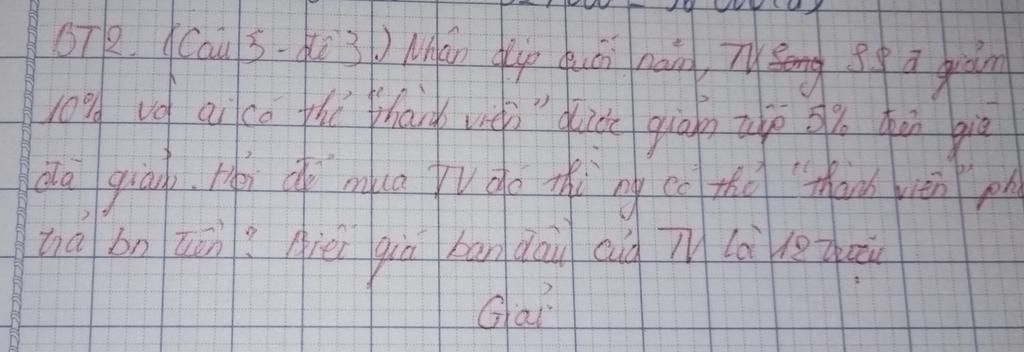 BT2. (Câu 5 - đề 3.) Nhân dịp cuối năm, TV giảm
10% và ai có thẻ "thành viên" được giảm tiếp 5% trên giá
đã giảm. Hỏi để mua TV đó thì ng có thẻ "thành viên" ph
trả bn tiền? Biết giá ban đầu của TV là 12 triệu
Giải